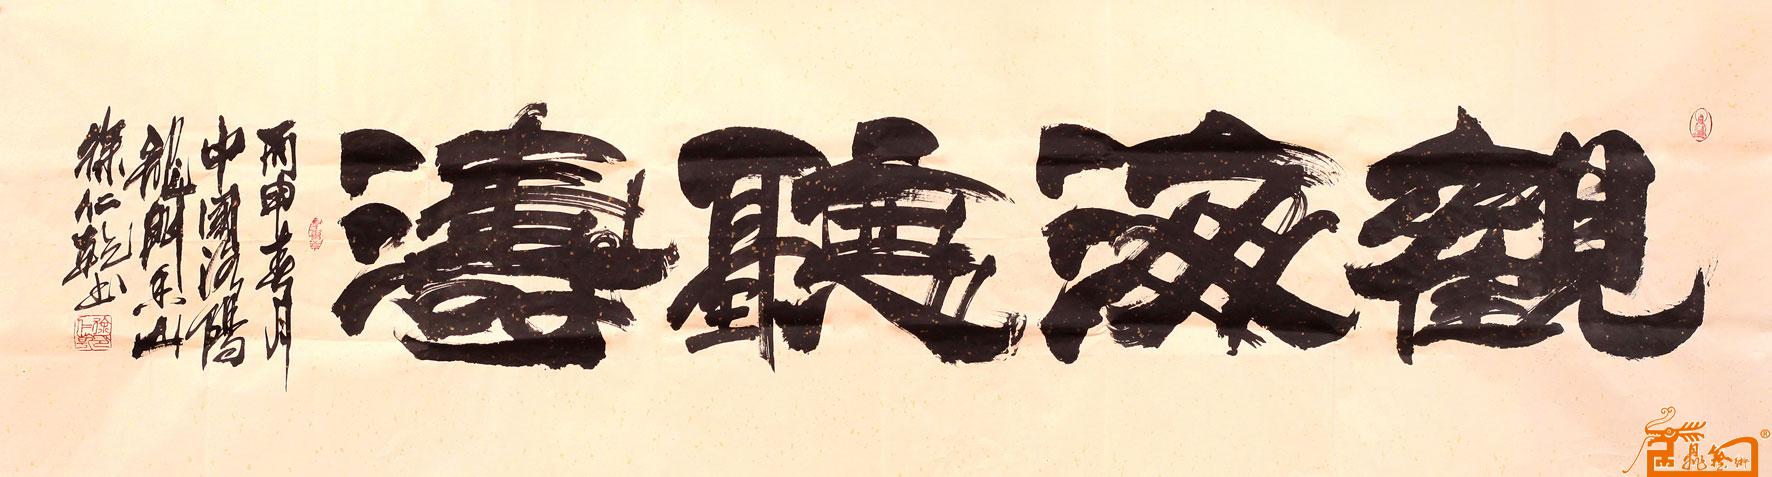 觀海聽濤
丙申春月
中國洛陽
龍門東山
徐仁乾书